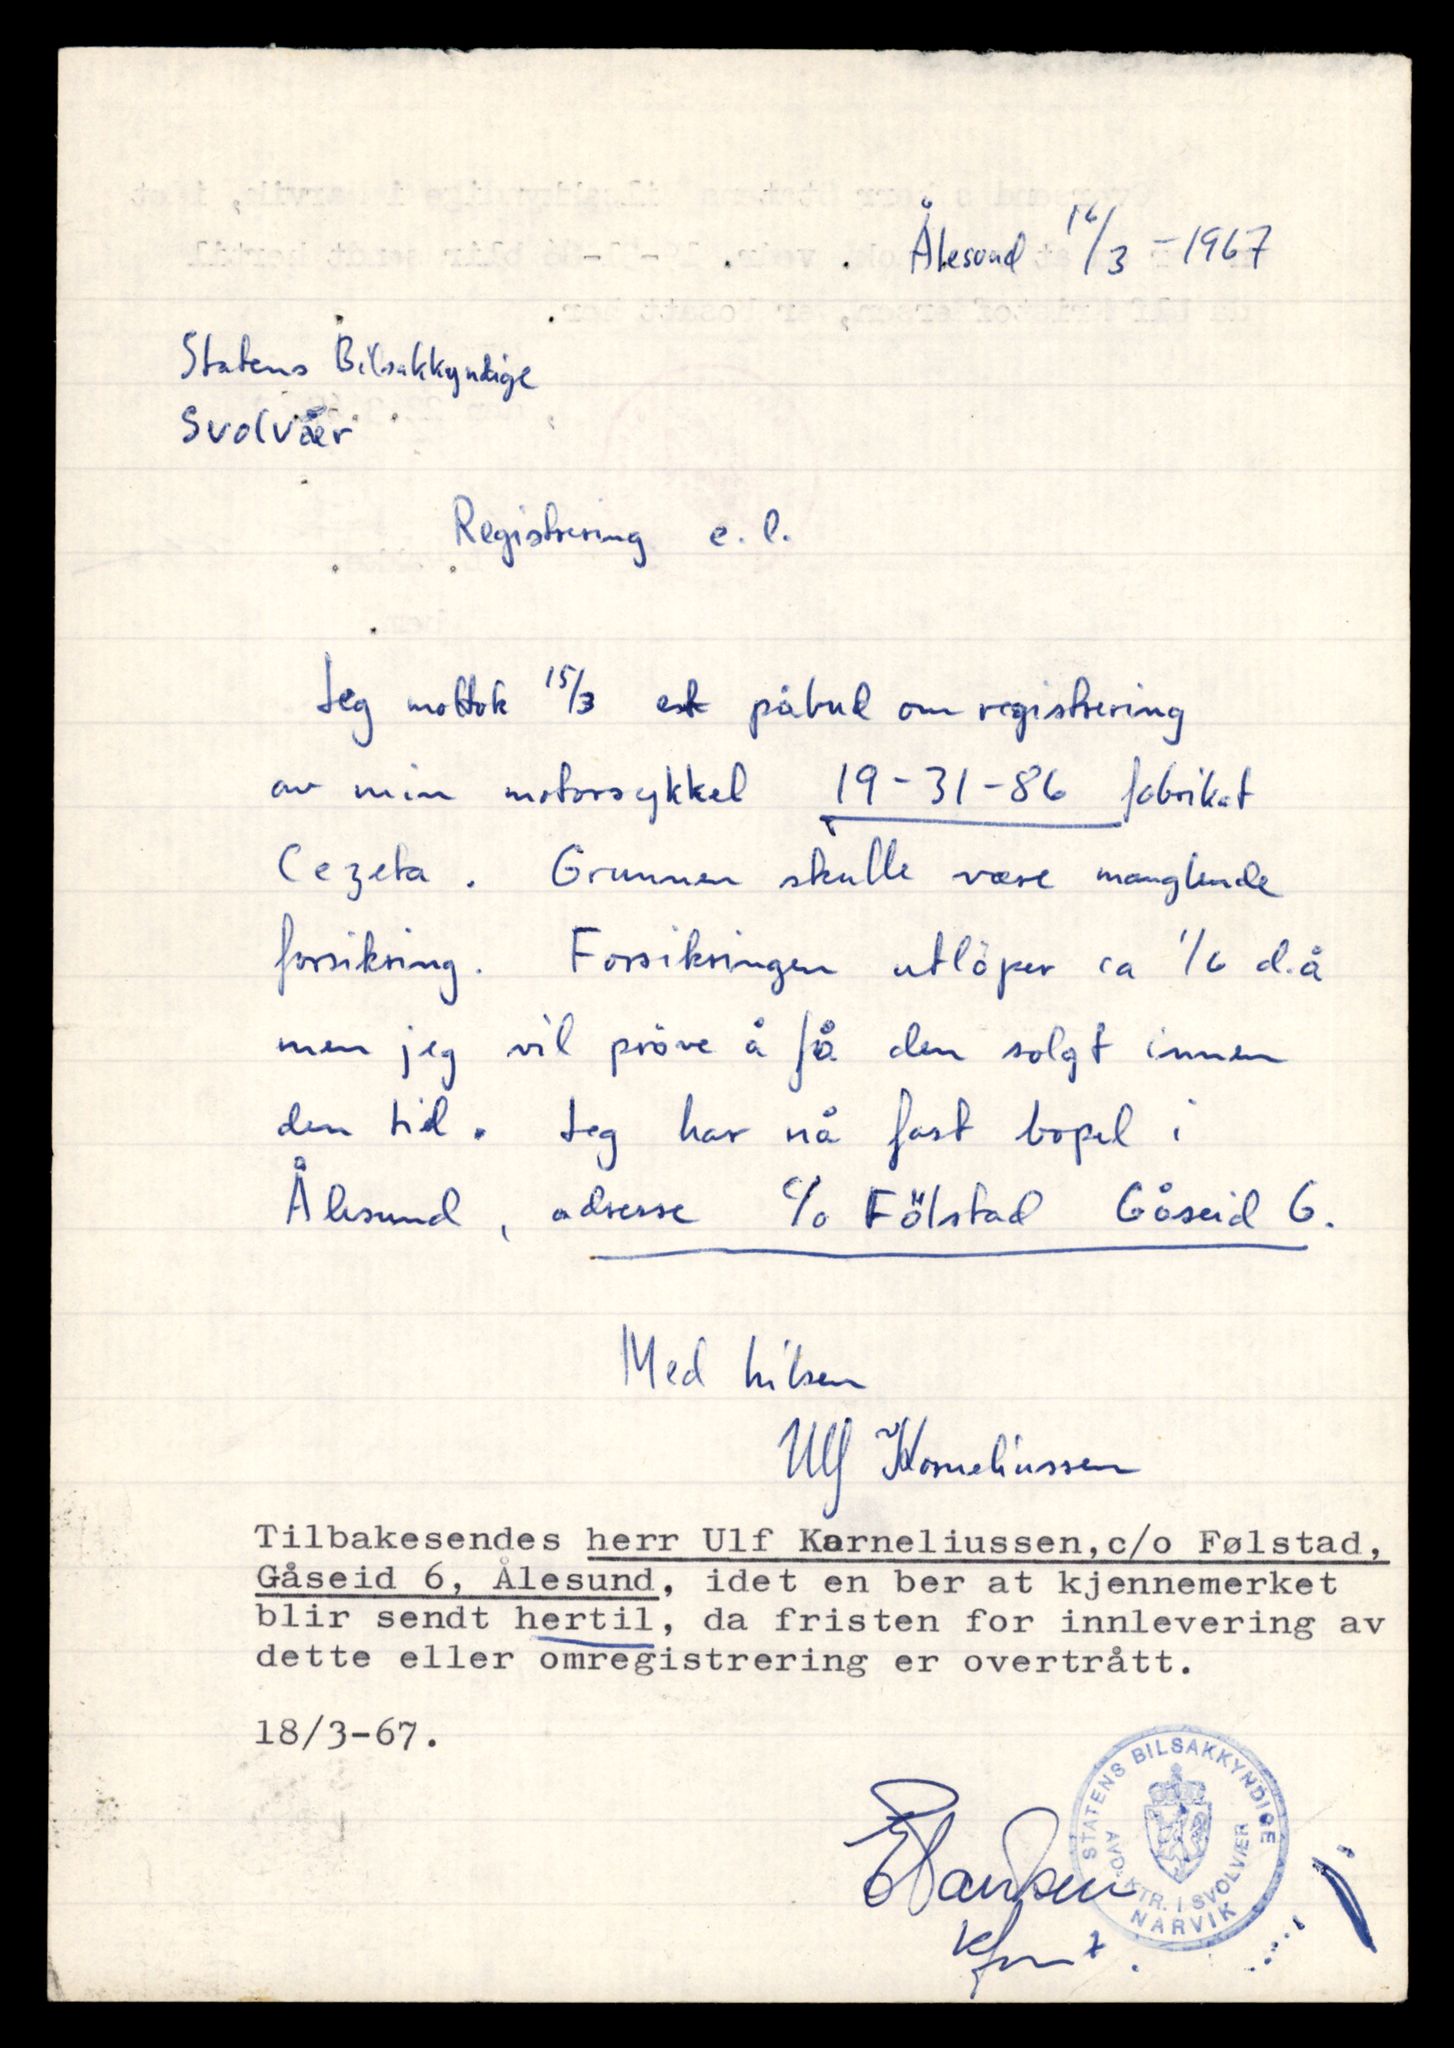 Ålesund 16/3 - 1967
Statens Bilsakkyndige
Svolvær
Registrering e.l.
Jeg mottok 15/3 et påbud om registrering
av min motorsykkel 19-31-86 fabrikat
Cezeta. Grunnen skulle være manglende
forsikring. Forsikringen utlöper ca 1/6 d.å
men jeg vil pröve å få den solgt innen
den tid. Jeg har nå fast bopel i
Ålesund, adresse c/o Fölstad Gåseid 6.
Med hilsen
Ulf Korneliussen
Tilbakesendes herr Ulf Karneliussen, c/o Følstad,
Gåseid 6, Ålesund, idet en ber at kjennemerket
blir sendt hertil, da fristen for innlevering av
dette eller omregistrering er overtrått.
18/3-67.
STATENS BILSAKKYNDIGE
AVD. KTR. I SVOLVÆR
NARVIK